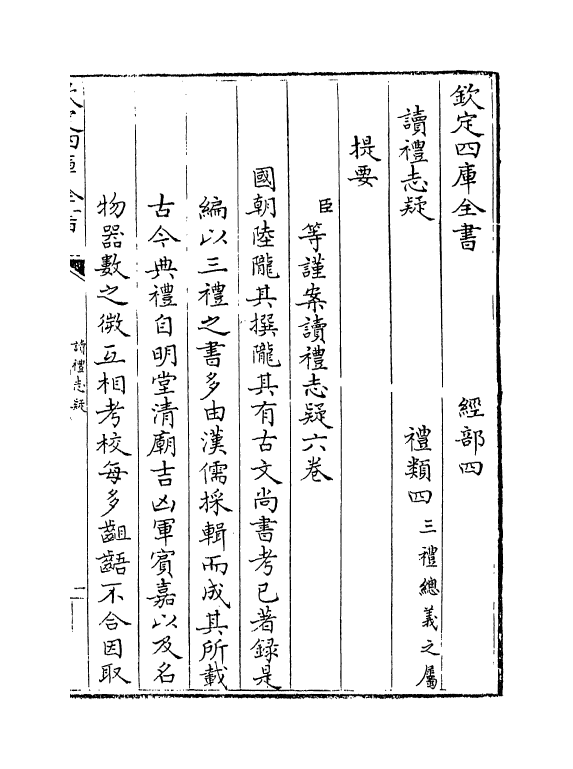 欽定四庫全書　經部四
讀禮志疑　禮類四三禮總義之屬
提要
臣等謹案讀禮志疑六卷
國朝陸隴其撰隴其有古文尚書考已著録是
編以三禮之書多由漢儒採輯而成其所載
古今典禮自明堂清廟吉凶軍賓嘉以及名
物器數之微互相考校每多齟齬不合因取
欽定四庫全書
讀禮志疑
一